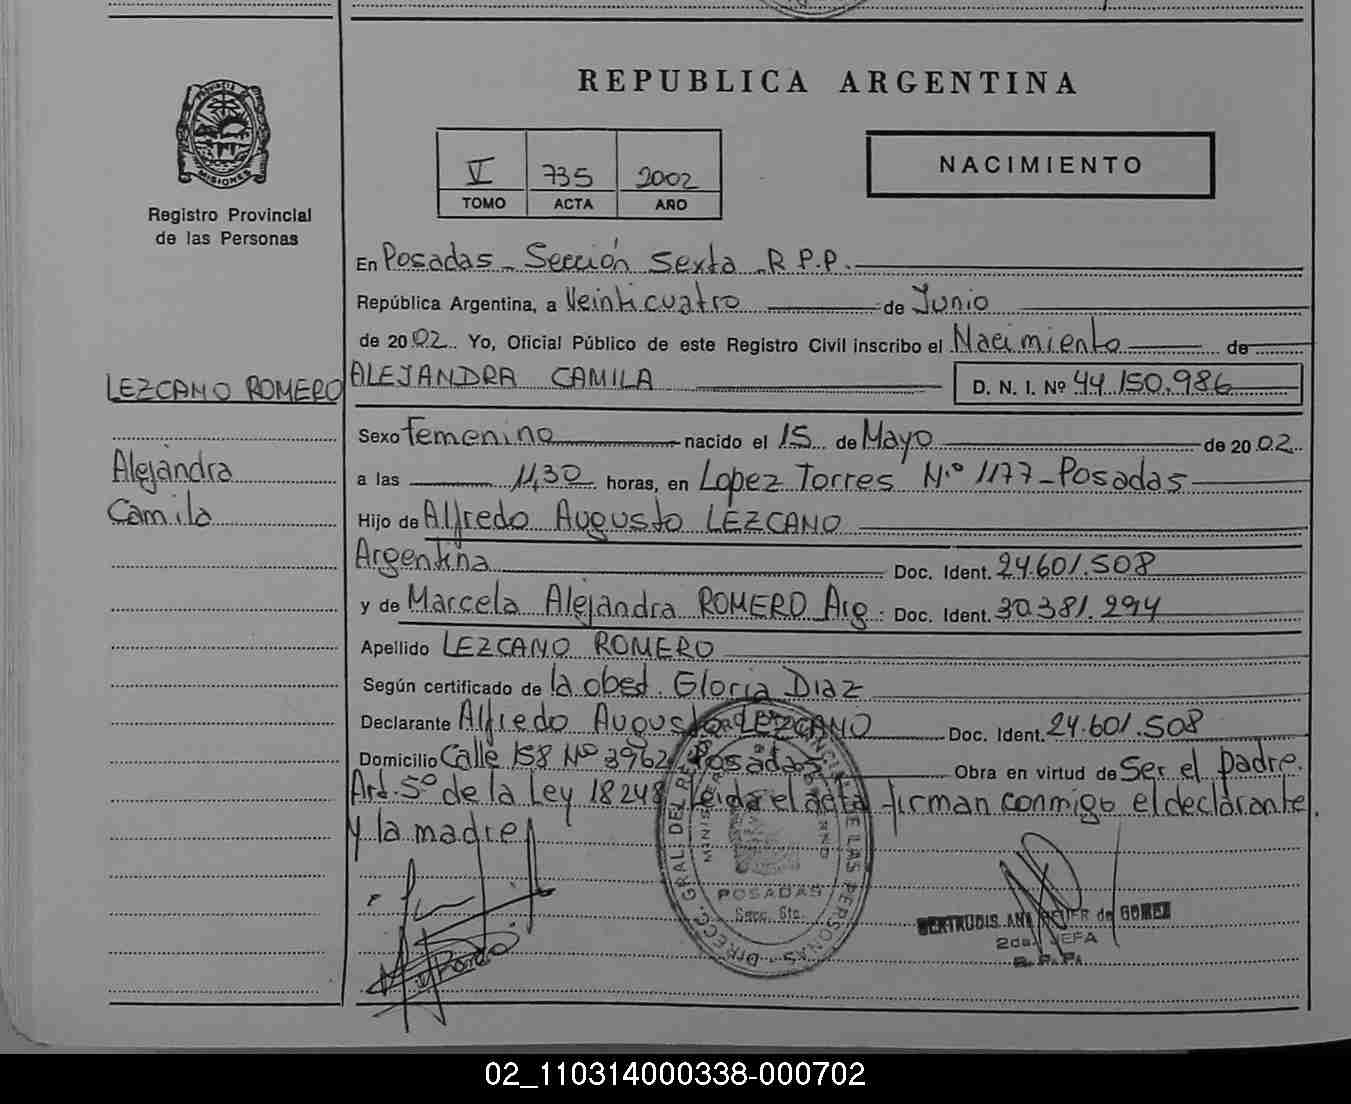 REPUBLICA ARGENTINA
PROVINCIA DE
MISIONES
Registro Provincial
de las Personas
V 735 2002
TOMO ACTA AÑO
NACIMIENTO
En Posadas - Sección Sexta - R P.P.
República Argentina, a Veinticuatro de Junio
de 2002 Yo, Oficial Público de este Registro Civil inscribo el Nacimiento de
LEZCANO ROMERO
ALEJANDRA CAMILA D. N. I. Nº 44.150.986
Sexo Femenino nacido el 15 de Mayo de 2002
Alejandra
Camila
a las 11,30 horas, en Lopez Torres N.º 1177 - Posadas
Hijo de Alfredo Augusto LEZCANO
Argentina Doc. Ident. 24.601.508
y de Marcela Alejandra ROMERO Arg. Doc. Ident. 30.381.294
Apellido LEZCANO ROMERO
Según certificado de la obst. Gloria Diaz
Declarante Alfredo Augusto LEZCANO Doc. Ident. 24.601.508
Domicilio Calle 158 Nº 3962 Posadas Obra en virtud de Ser el padre.
Art. 5º de la Ley 18248 Leida el acta firman conmigo el declarante
y la madre
DIRECC. GRAL. DEL REG. PROVINCIAL DE LAS PERSONAS
POSADAS
Secc. 6ta.
GERTRUDIS ANA de GOMEZ
2da. JEFA
R. P. P.
02_110314000338-000702